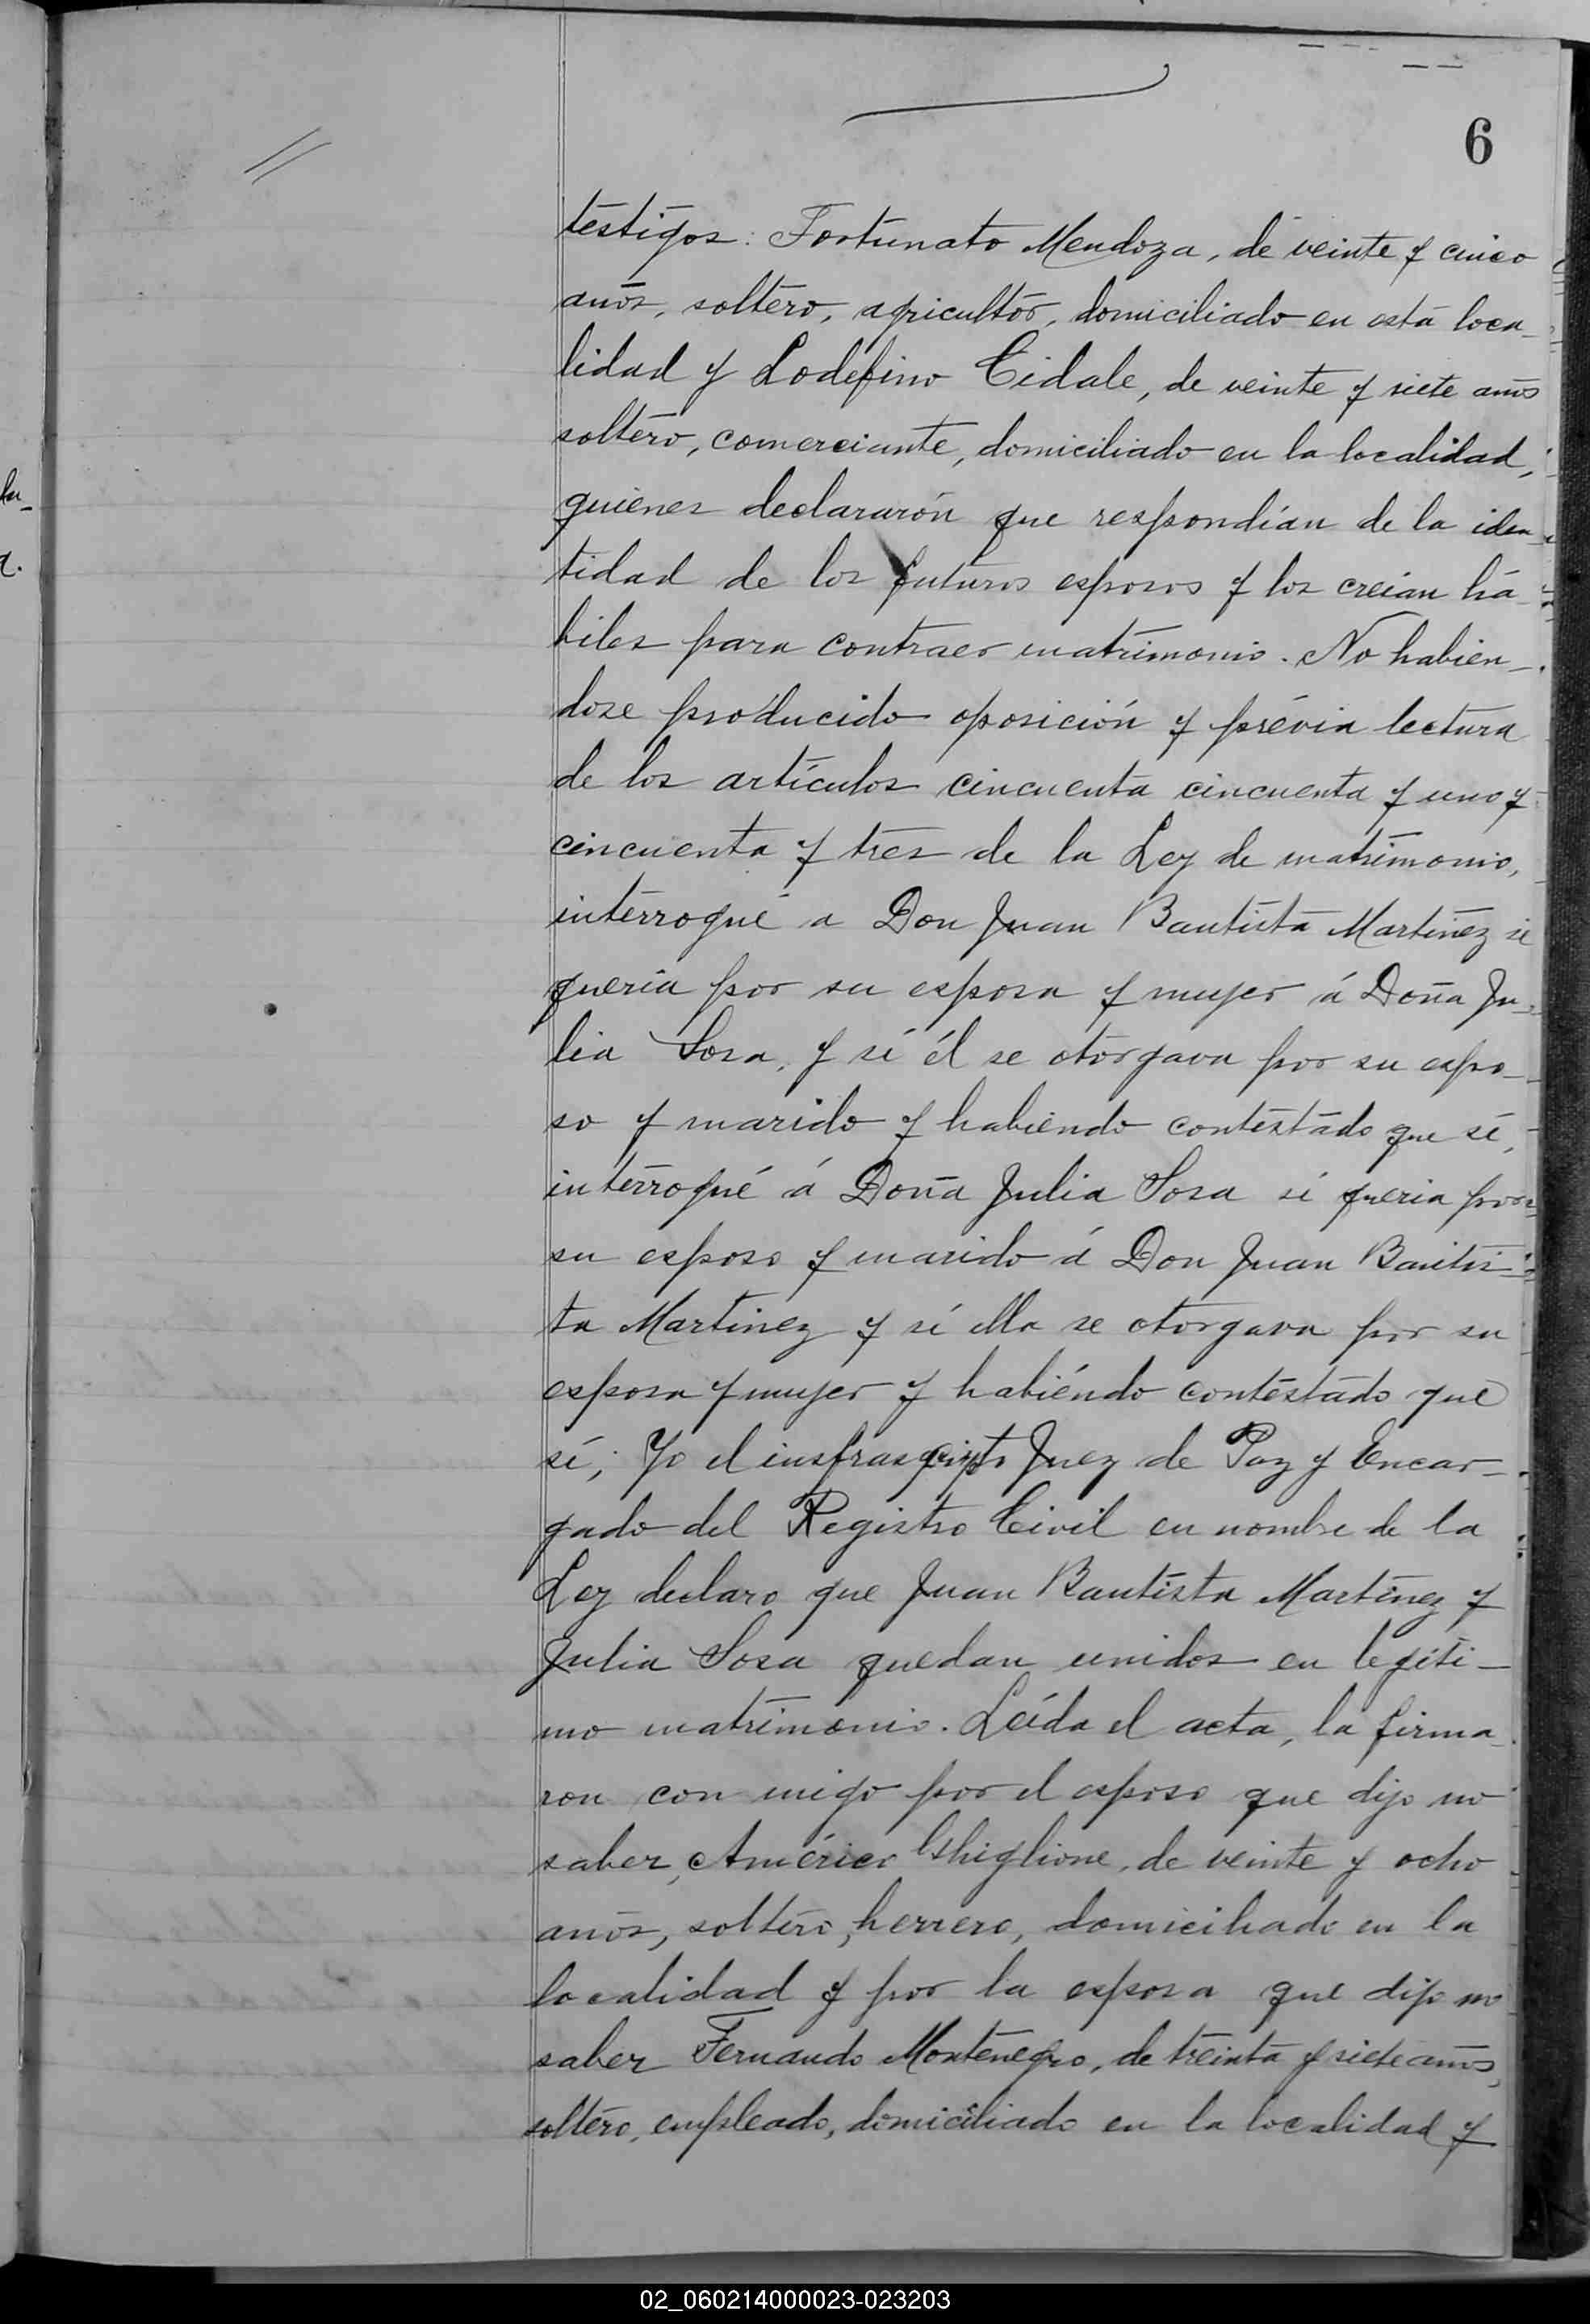 6
testigos: Fortunato Mendoza, de veinte y cinco
años, soltero, agricultor, domiciliado en esta loca-
lidad y Lodefino Cidale, de veinte y siete años
soltero, comerciante, domiciliado en la localidad,
quienes declararón que respondían de la iden-
tidad de los futuros esposos y los creian há-
biles para contraer matrimonio. No habien-
dose producido oposición y prévia lectura
de los artículos cincuenta cincuenta y uno y
cincuenta y tres de la Ley de matrimonio,
interrogué a Don Juan Bautista Martinez si
quería por su esposa y mujer á Doña Ju-
lia Sosa, y si él se otorgava por su espo-
so y marido y habiendo contestado que sí,
interrogué á Doña Julia Sosa si queria por
su esposo y marido á Don Juan Bautis-
ta Martinez y si ella se otorgava por su
esposa y mujer y habiéndo contestado que
sí; Yo el insfrascripto Juez de Paz y Encar-
gado del Registro Civil en nombre de la
Ley declaro que Juan Bautista Martinez y
Julia Sosa quedan unidos en legiti-
mo matrimonio. Leída el acta, la firma-
ron con migo por el esposo que dijo no
saber, Américo Ghiglione, de veinte y ocho
años, soltero, herrero, domiciliado en la
localidad y por la esposa que dijo no
saber Fernando Montenegro, de treinta y siete años,
soltero, empleado, domiciliado en la localidad y
02_060214000023-023203